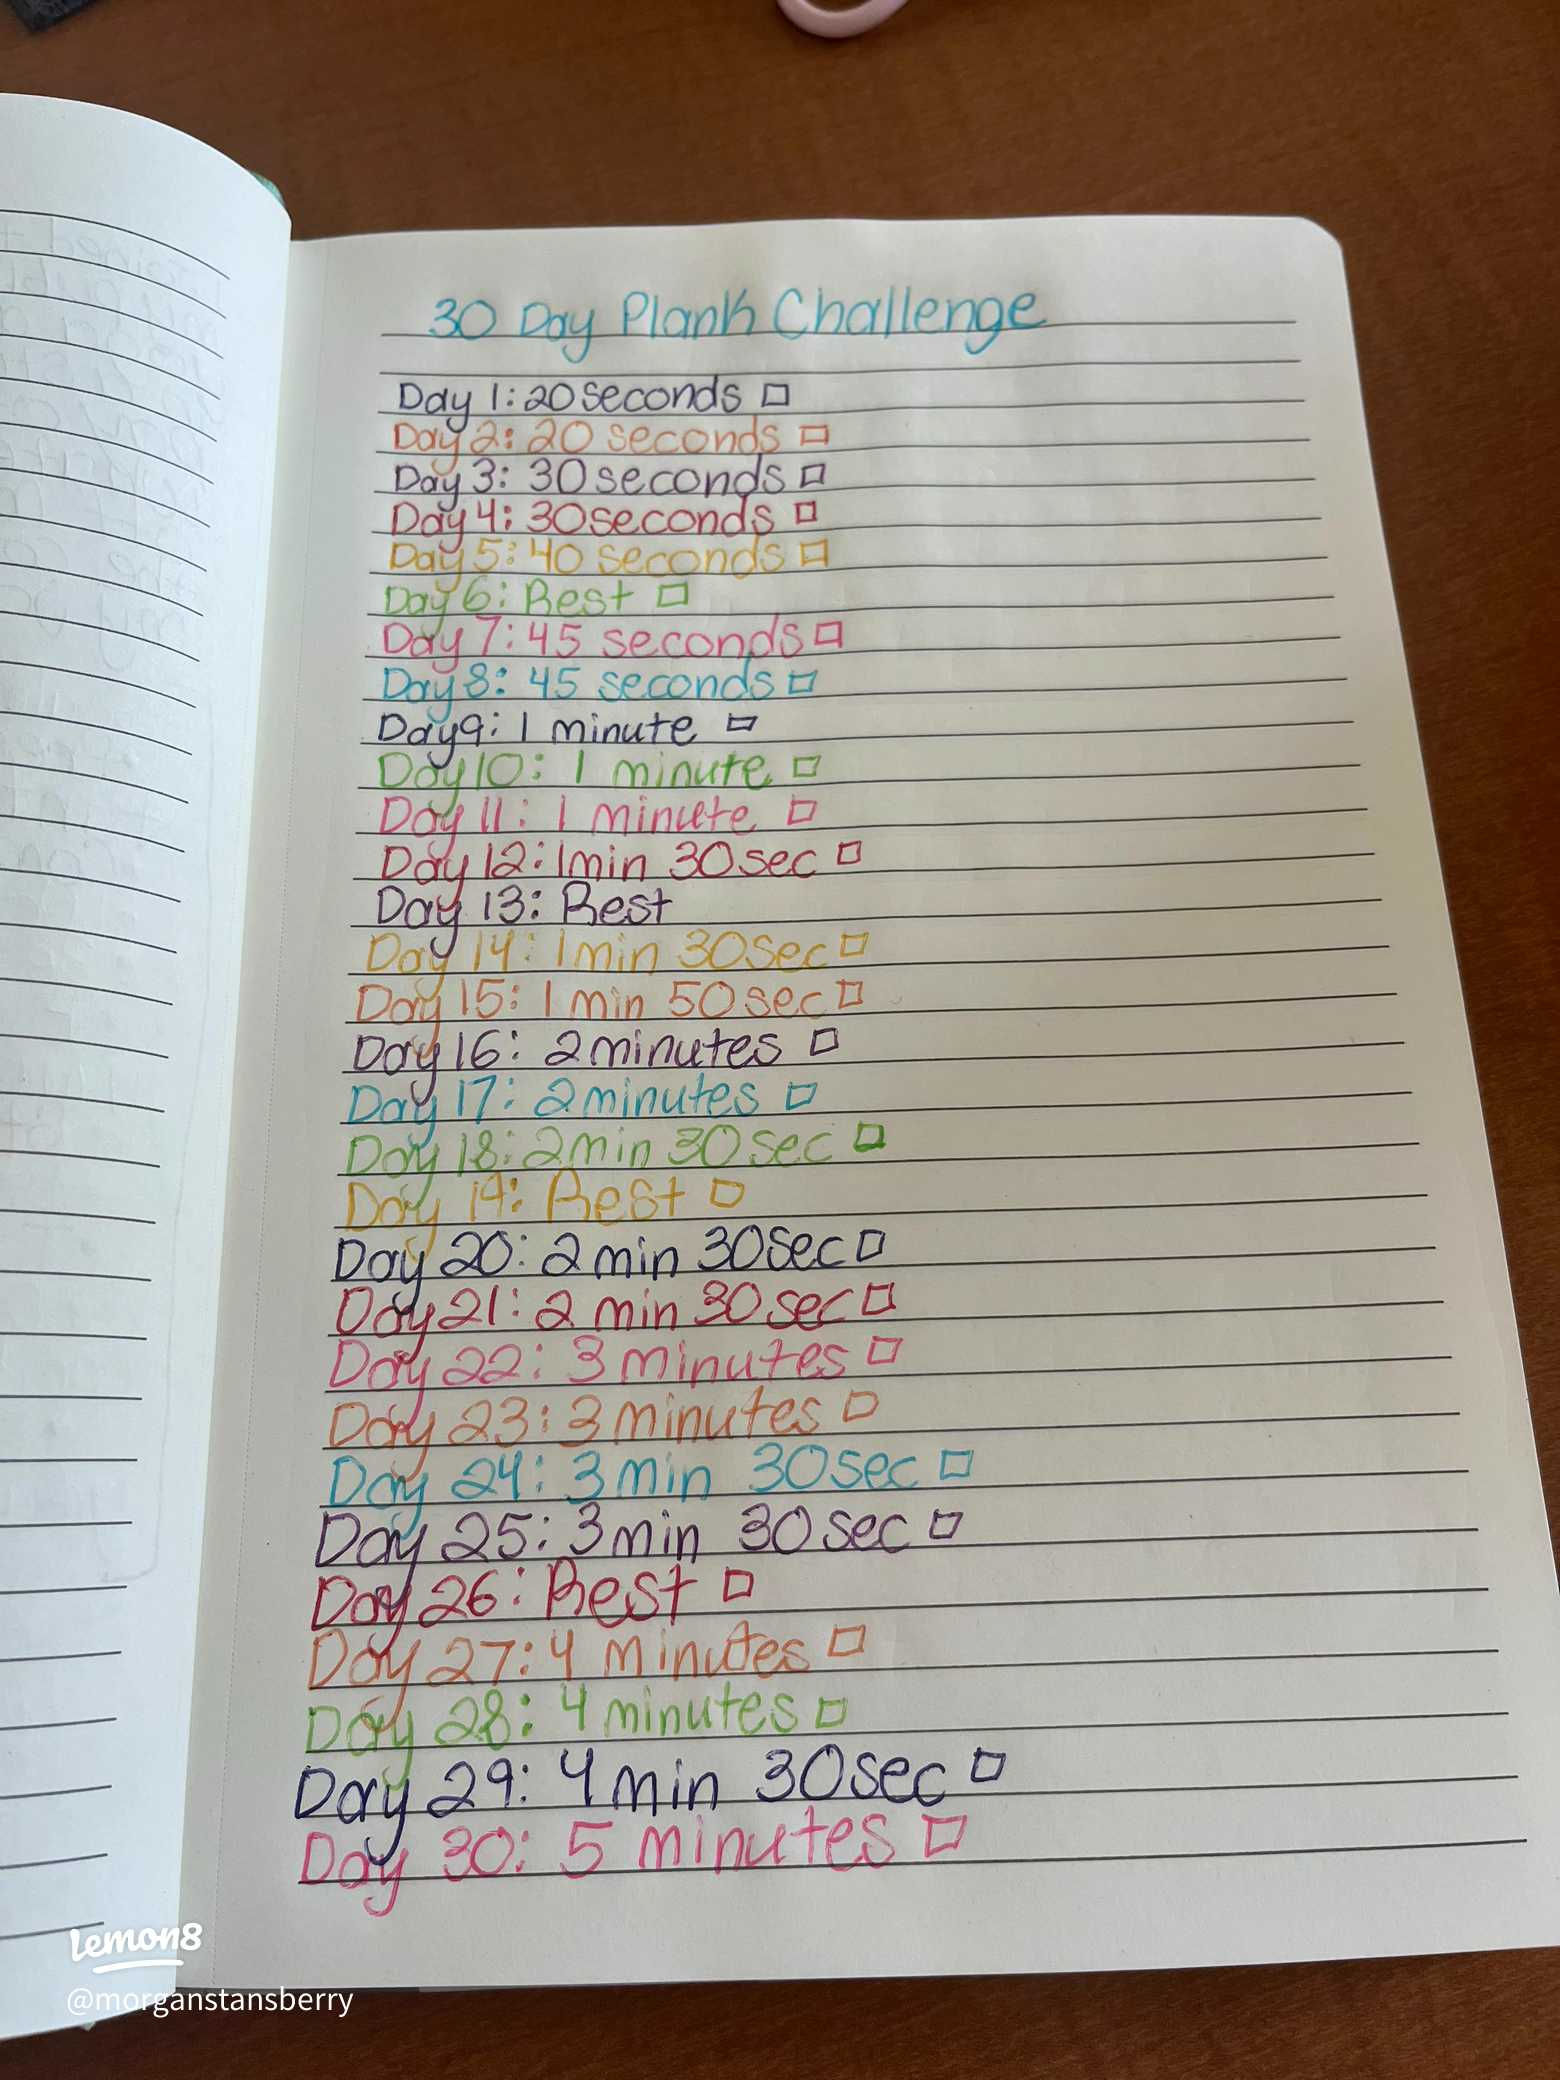 30 Day Plank Challenge
Day 1: 20 seconds
Day 2: 20 seconds
Day 3: 30 seconds
Day 4: 30 seconds
Day 5: 40 seconds
Day 6: Rest
Day 7: 45 seconds
Day 8: 45 seconds
Day 9: 1 minute
Day 10: 1 minute
Day 11: 1 minute
Day 12: 1min 30sec
Day 13: Rest
Day 14: 1min 30sec
Day 15: 1 min 50sec
Day 16: 2minutes
Day 17: 2minutes
Day 18: 2min 30sec
Day 19: Rest
Day 20: 2 min 30sec
Day 21: 2 min 30sec
Day 22: 3 minutes
Day 23: 3 minutes
Day 24: 3 min 30sec
Day 25: 3 min 30sec
Day 26: Rest
Day 27: 4 minutes
Day 28: 4 minutes
Day 29: 4 min 30sec
Day 30: 5 minutes
Lemon8
@morganstansberry